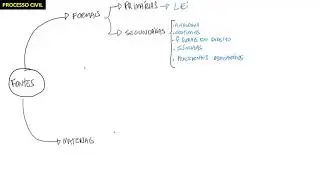 PROCESSO CIVIL
FORMAIS
PRIMÁRIAS → LEI
SECUNDÁRIAS
• ANALOGIA
• COSTUMES
• P. GERAIS DO DIREITO
• SÚMULAS
• PRECEDENTES
FONTES
MATERIAIS